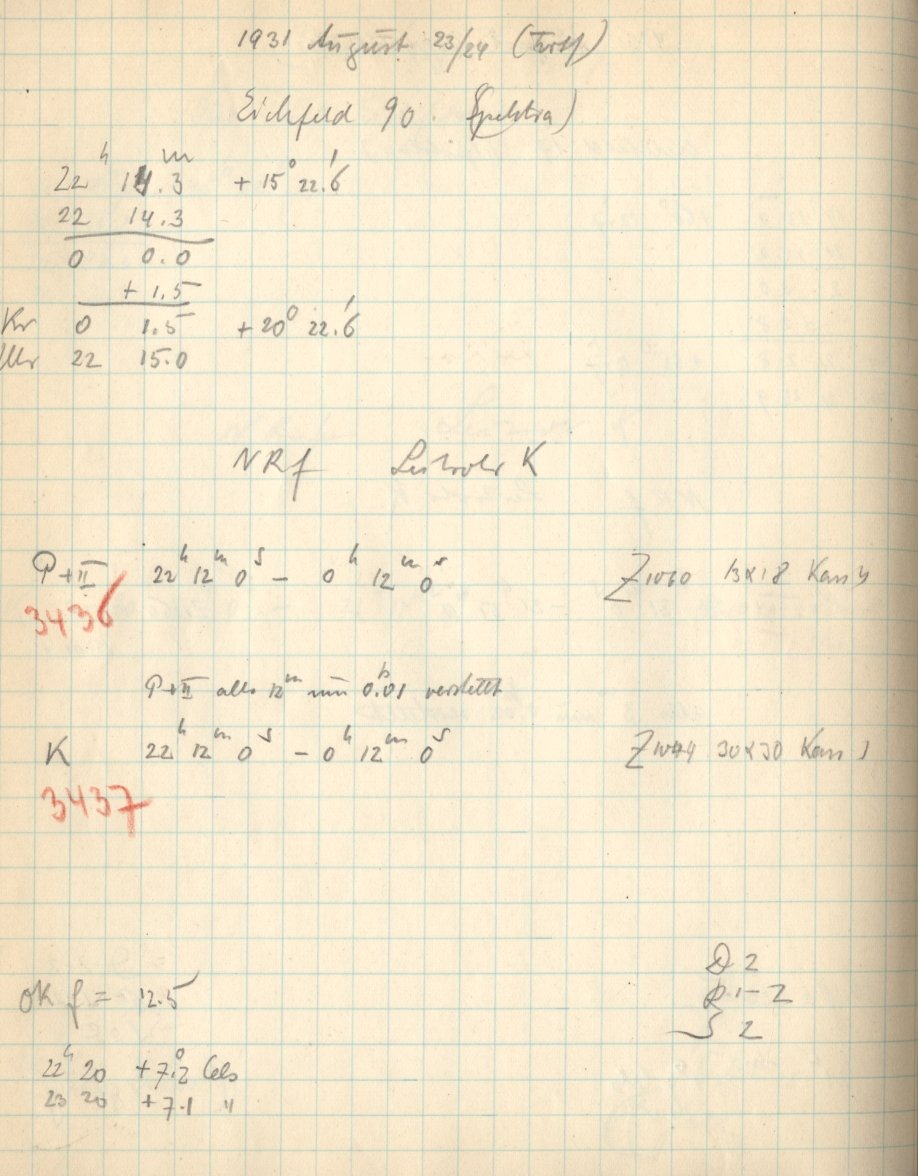 1931 August 23/24
Eichfeld 90. Spektra)
22ʰ 14.3ᵐ +15° 22.'6
22 14.3
0 0.0
+ 1.5
Kr 0 1.5 +20° 22.'6
Uhr 22 15.0
NRf Leitrohr K
P+II 22ʰ 12ᵐ 0ˢ – 0ʰ 12ᵐ 0ˢ Z1060 13x18
3436
P+II alle 12ᵐ um 0.01 verstellt
K 22ʰ 12ᵐ 0ˢ – 0ʰ 12ᵐ 0ˢ Z1044 30x30
3437
D 2
OK f = 12.5 R 1–2
S 2
22ʰ 20 +7.°2 Cels
23 20 +7.1 "